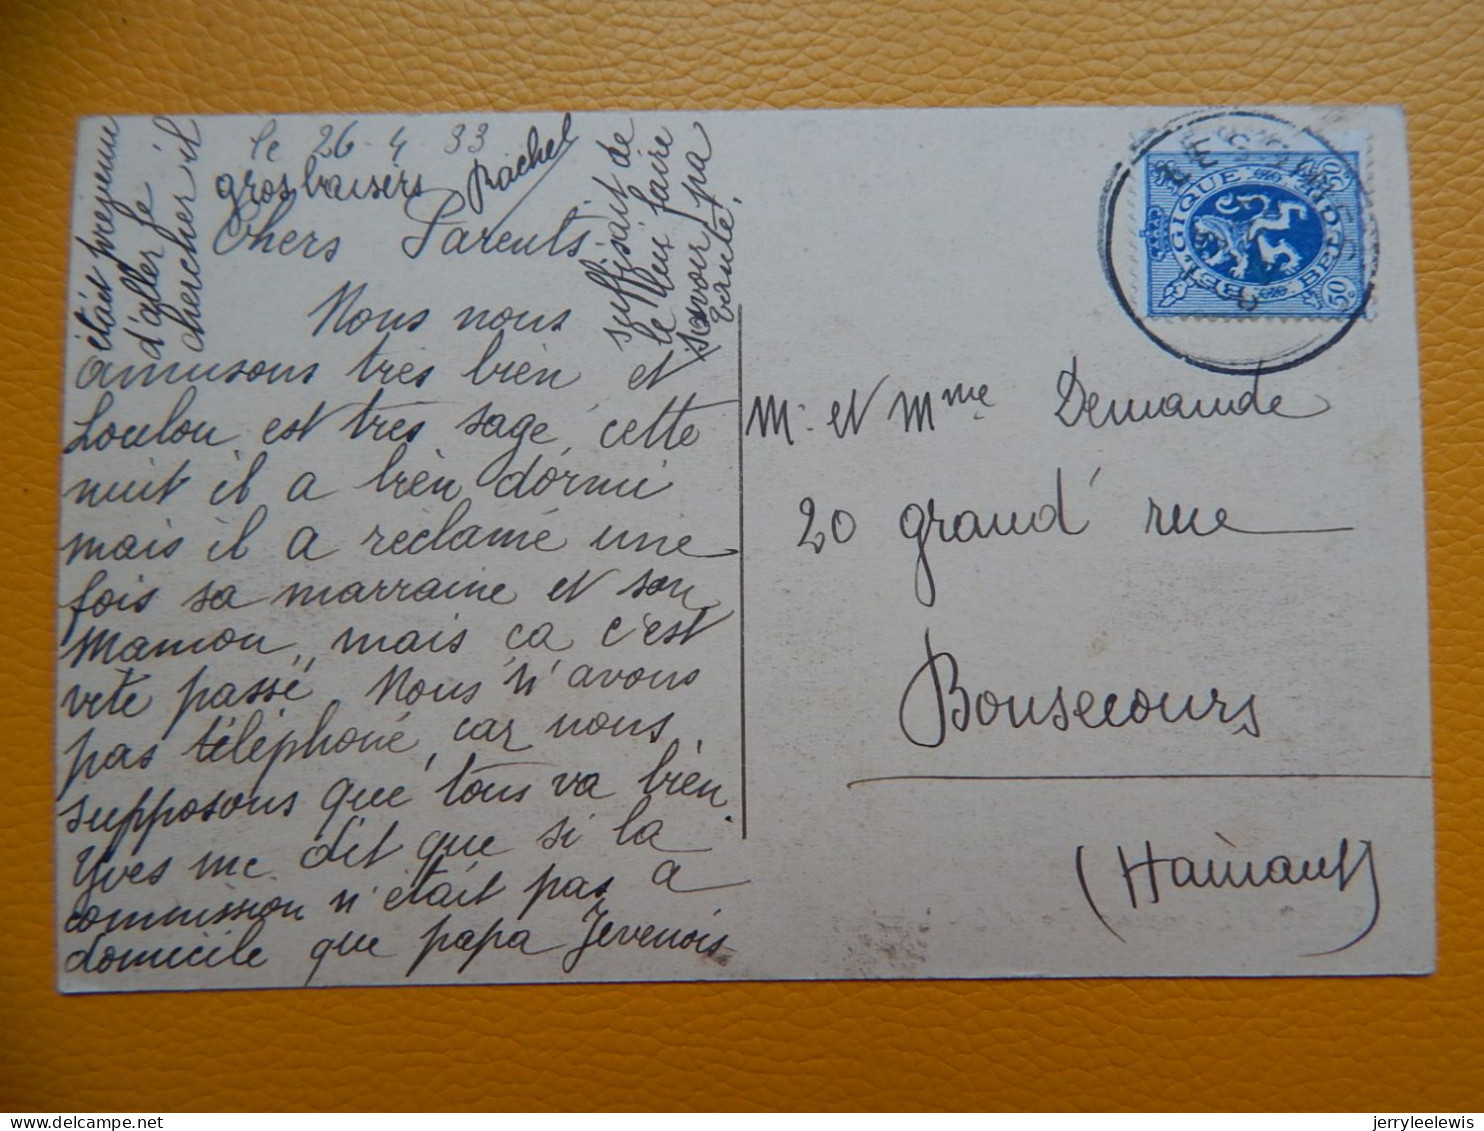 le 26-4 33
gros baisers Rachel
Chers Parents
Nous nous
amusons très bien et
Loulou est très sage, cette
nuit il a bien dormi
mais il a réclamé une
fois sa marraine et son
Mamou, mais ça c'est
vite passé. Nous n'avons
pas téléphoné, car nous
supposons que tous va bien.
Yves me dit que si la
commission n'était pas a
domicile que papa Jevenois
était prevenu
d'aller le
chercher il
suffisait de
le leur faire
savoir, pa
tante,
M. et Mme Demande
20 grand' rue
Bonsecours
(Hainaut)
BELGIQUE BELGIE
50c 50c
jerryleelewis